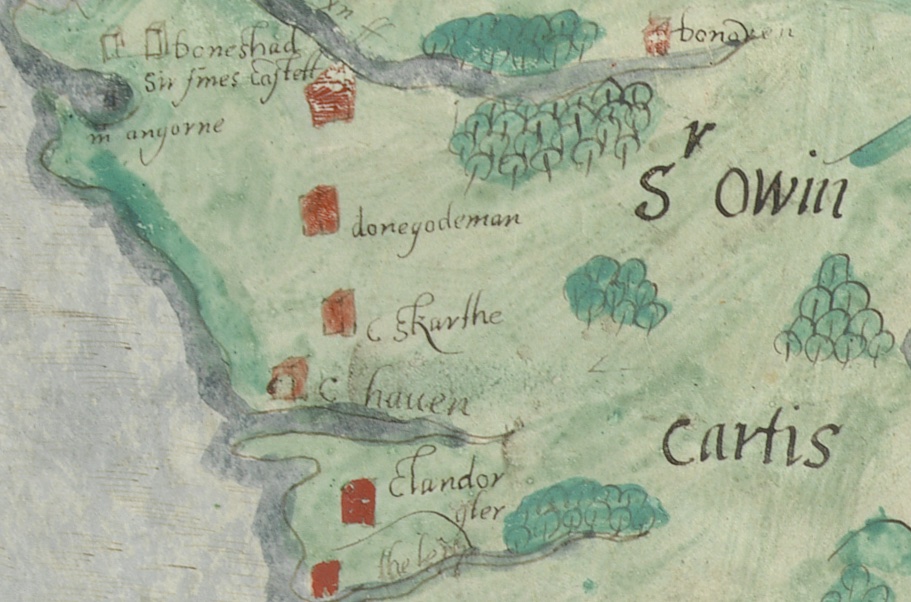 boneshad
Sir Jmes Castell
m angorne
bonaven
Sr Owin
donegodeman
c skarthe
c hauen
Cartis
Clandor
gler